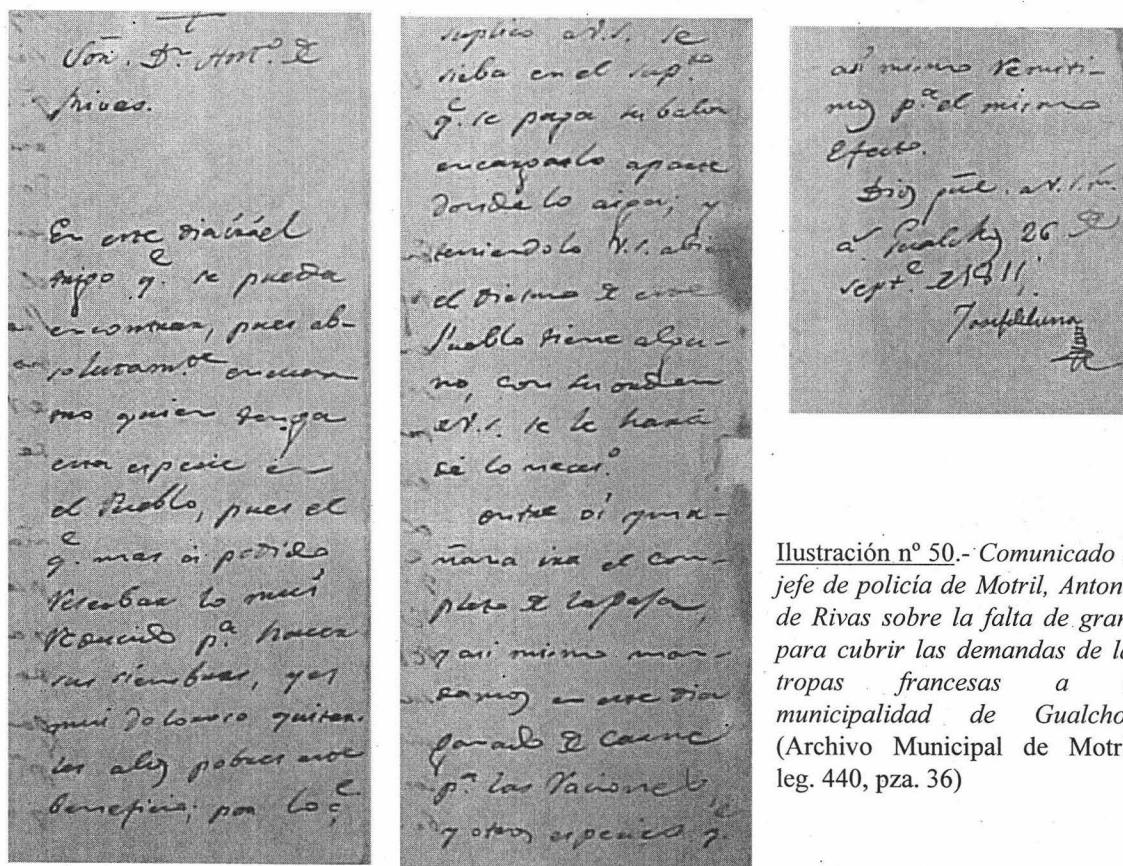 Sōn. Dn. Antº. de
Rivas.
En este dia irá el
trigo qe. se pueda
encontrar, pues ab-
solutamte. encuen
tro quien tenga
esta especie en
el Pueblo, pues el
qe. mas á pedido,
reserban lo mui
reducido pª. hacer
sus siembras, y es
mui doloroso quitar-
les alos pobres este
beneficio; por lo qe.
suplico a V.S. se
sirba en el supto.
qe. se paga su balor
encargarlo aparte
donde lo aiga; y
teniendolo V.S. abia
el Diesmo de este
Pueblo tiene algu-
no, con su orden
de V.S. se le hará
dé lo neces.º
entre oi y ma-
ñana ira el com-
pleto de la paja,
y asi mismo man-
damos en este dia
ganado de carne
pª. las raciones,
y otras especies qe.
asi mismo remiti-
mos pª. el mismo
efecto.
Dios gūe. a V.S. m.
aˢ. Gualchos 26 de
septe. de 1811.
Josef de Luna
Ilustración nº 50.- Comunicado
jefe de policía de Motril, Anton
de Rivas sobre la falta de gran
para cubrir las demandas de la
tropas francesas a
municipalidad de Gualcho
(Archivo Municipal de Motr
leg. 440, pza. 36)